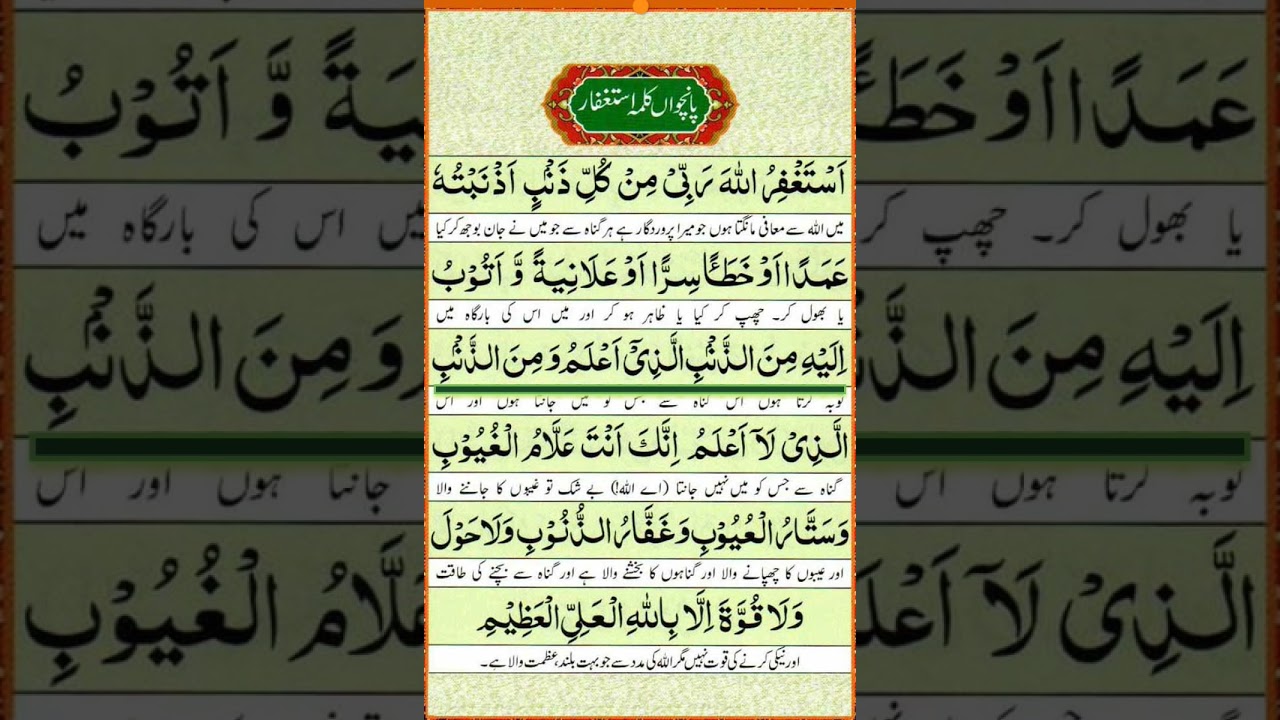 پانچواں کلمہ استغفار
اَسْتَغْفِرُ اللّٰهَ رَبِّیْ مِنْ كُلِّ ذَنْۢبٍ اَذْنَبْتُهٗ
میں اللہ سے معافی مانگتا ہوں جو میرا پروردگار ہے ہر گناہ سے جو میں نے جان بوجھ کر کیا
عَمَدًا اَوْ خَطَأً سِرًّا اَوْ عَلَانِيَةً وَّ اَتُوْبُ
یا بھول کر۔ چھپ کر کیا یا ظاہر ہو کر اور میں اس کی بارگاہ میں
اِلَيْهِ مِنَ الذَّنْۢبِ الَّذِیْٓ اَعْلَمُ وَمِنَ الذَّنْۢبِ
توبہ کرتا ہوں اس گناہ سے جس کو میں جانتا ہوں اور اس
الَّذِیْ لَآ اَعْلَمُ اِنَّكَ اَنْتَ عَلَّامُ الْغُيُوْبِ
گناہ سے جس کو میں نہیں جانتا (اے اللہ!) بے شک تو غیبوں کا جاننے والا
وَسَتَّارُ الْعُيُوْبِ وَغَفَّارُ الذُّنُوْبِ وَلَا حَوْلَ
اور عیبوں کا چھپانے والا اور گناہوں کا بخشنے والا ہے اور گناہ سے بچنے کی طاقت
وَلَا قُوَّةَ اِلَّا بِاللّٰهِ الْعَلِیِّ الْعَظِيْمِ
اور نیکی کرنے کی قوت نہیں مگر اللہ کی مدد سے جو بہت بلند، عظمت والا ہے۔